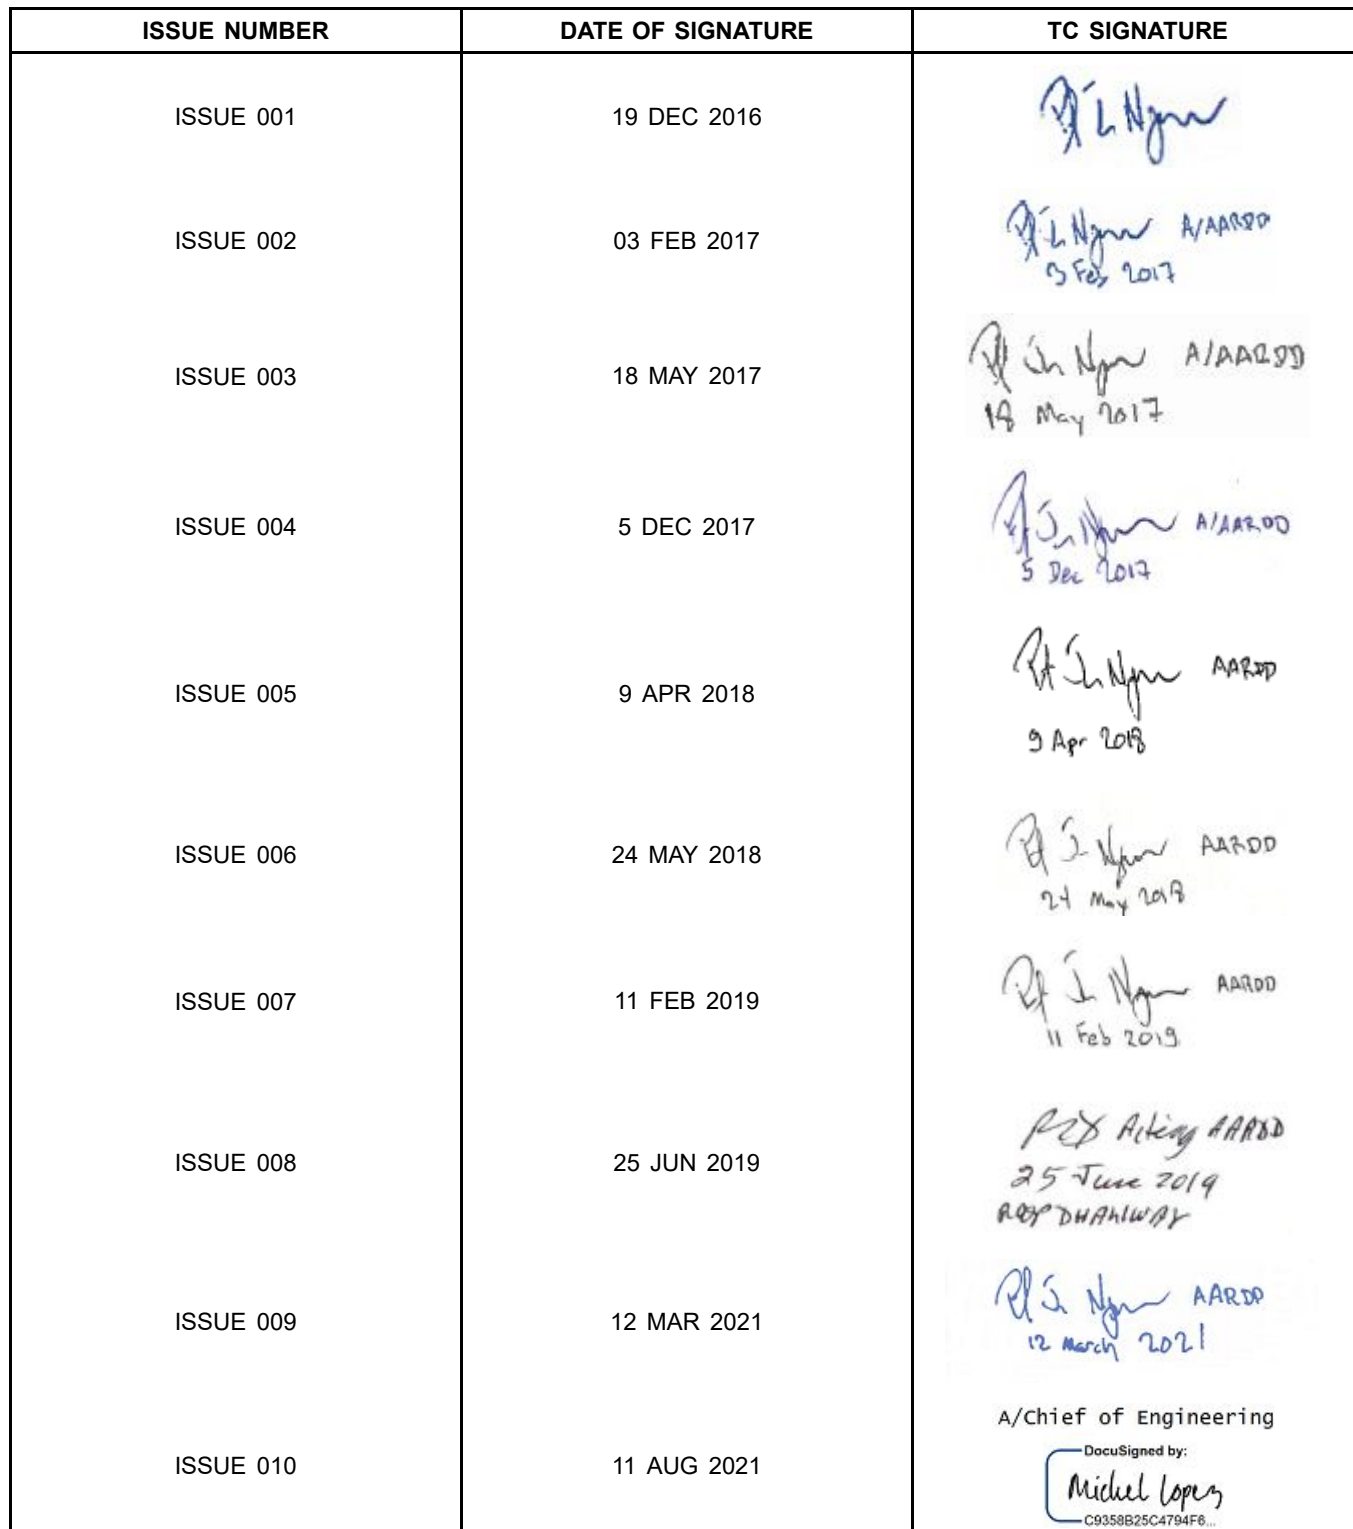 ISSUE NUMBER DATE OF SIGNATURE TC SIGNATURE
ISSUE 001 19 DEC 2016
ISSUE 002 03 FEB 2017 A/AARDD
3 Feb 2017
ISSUE 003 18 MAY 2017 A/AARDD
18 May 2017
ISSUE 004 5 DEC 2017 A/AARDD
5 Dec 2017
ISSUE 005 9 APR 2018 AARDD
9 Apr 2018
ISSUE 006 24 MAY 2018 AARDD
24 May 2018
ISSUE 007 11 FEB 2019 AARDD
11 Feb 2019
ISSUE 008 25 JUN 2019 Acting AARDD
25 June 2019
ISSUE 009 12 MAR 2021 AARDD
12 March 2021
A/Chief of Engineering
DocuSigned by:
ISSUE 010 11 AUG 2021 Michel Lopez
C9358B25C4794F6...